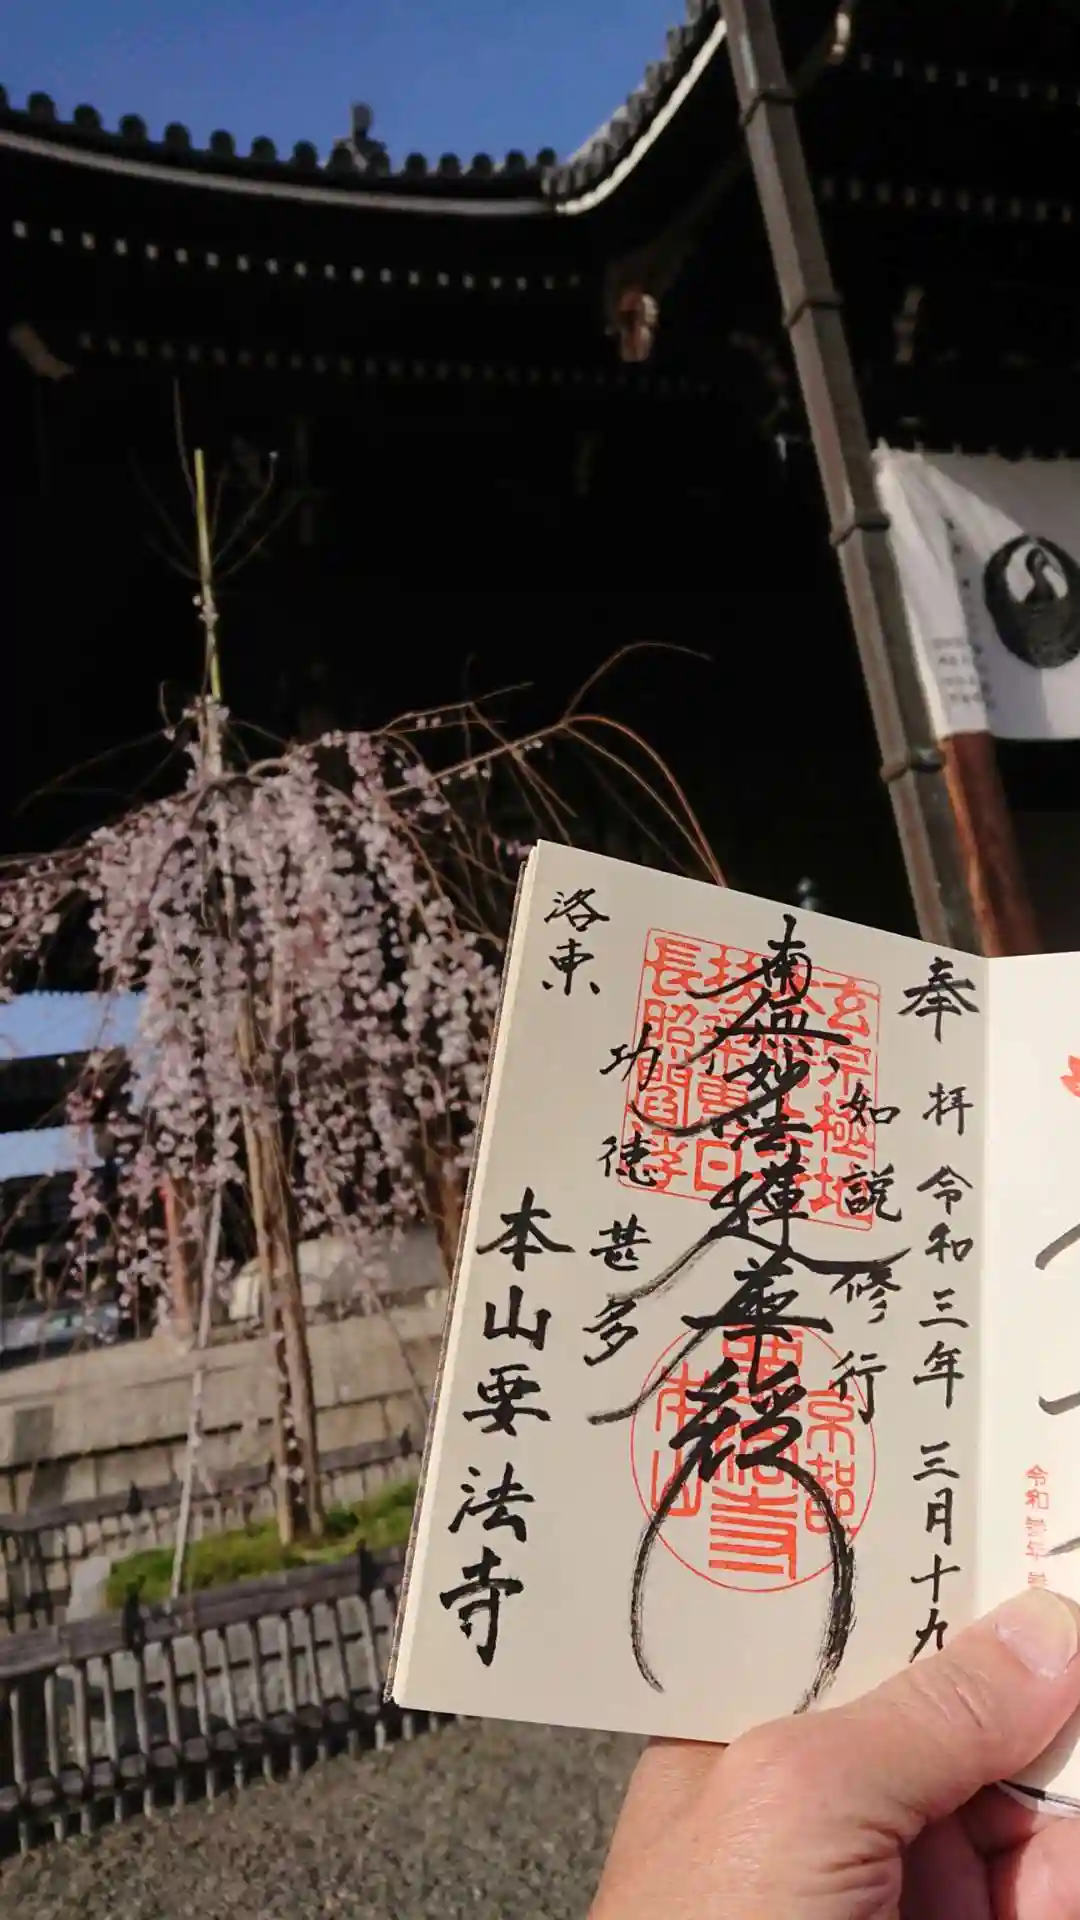 奉拝 令和三年 三月十九
如説修行
南無妙法蓮華経
功徳甚多
洛東
本山要法寺
玄宗極地
扶桑東日
長照閻浮
京都
要法寺
本山
令和